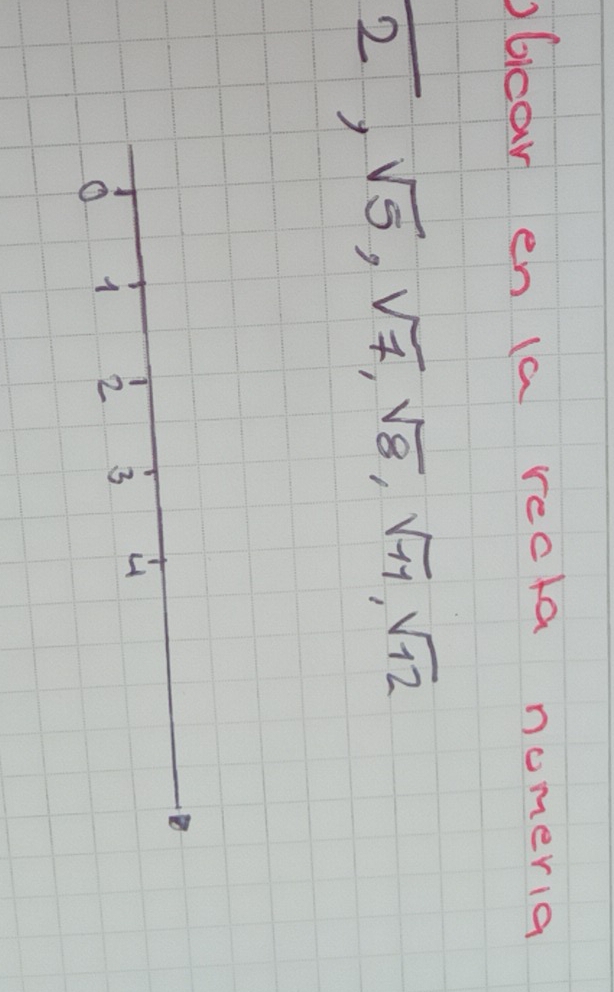 Ubicar en la recta numeria
√2, √5, √7, √8, √11, √12
0 1 2 3 4